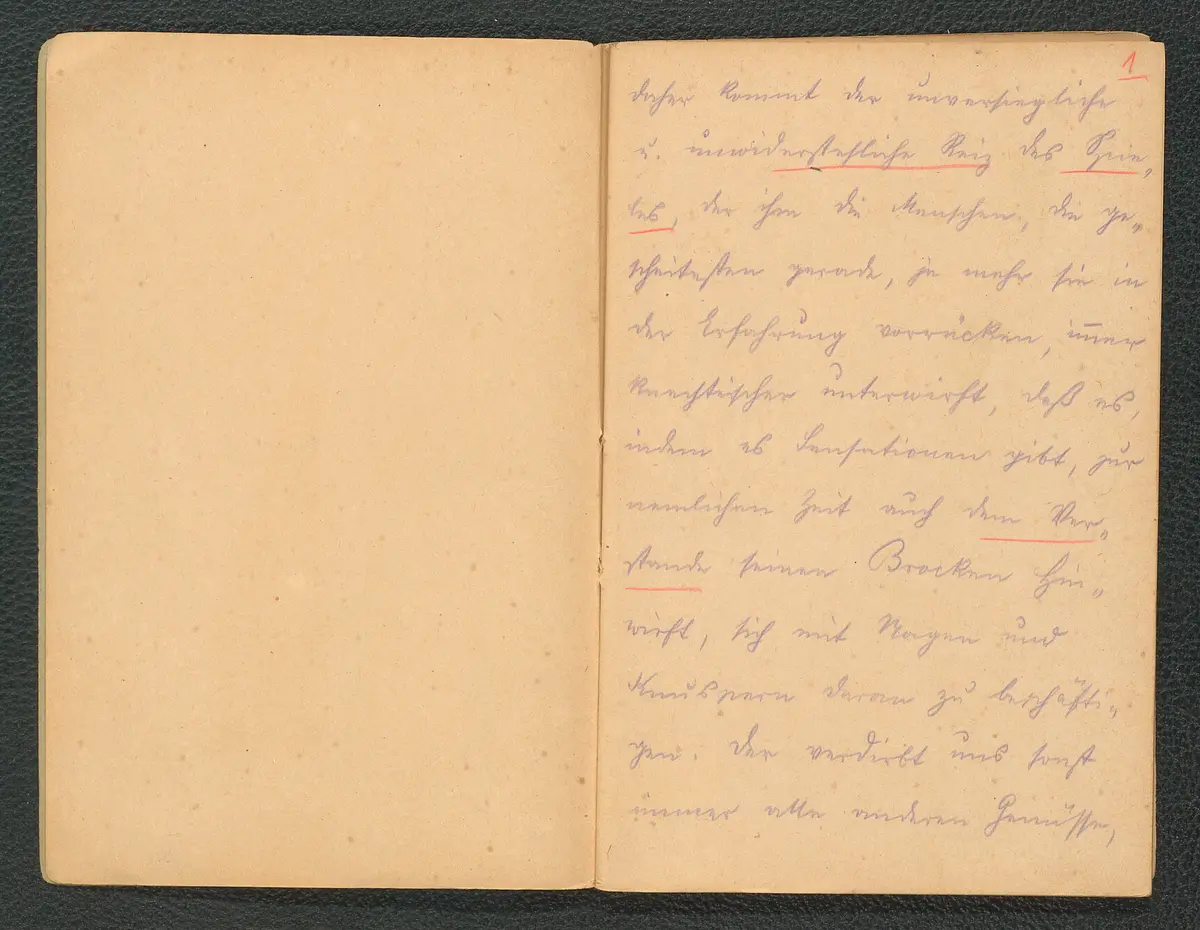 1
daher kommt der unversiegliche
u. unwiderstehliche Reiz des Spie„
les, der ihm die Menschen, die ge„
scheitesten gerade, je mehr sie in
der Erfahrung vorrücken, im̅er
knechtischer unterwirft, daß es,
indem es Sensationen gibt, zur
nemlichen Zeit auch dem Ver„
stande seinen Brocken hin„
wirft, sich mit Nagen und
Knuspern daran zu beschäfti„
gen. Der verdirbt uns sonst
immer alle anderen Genüsse,